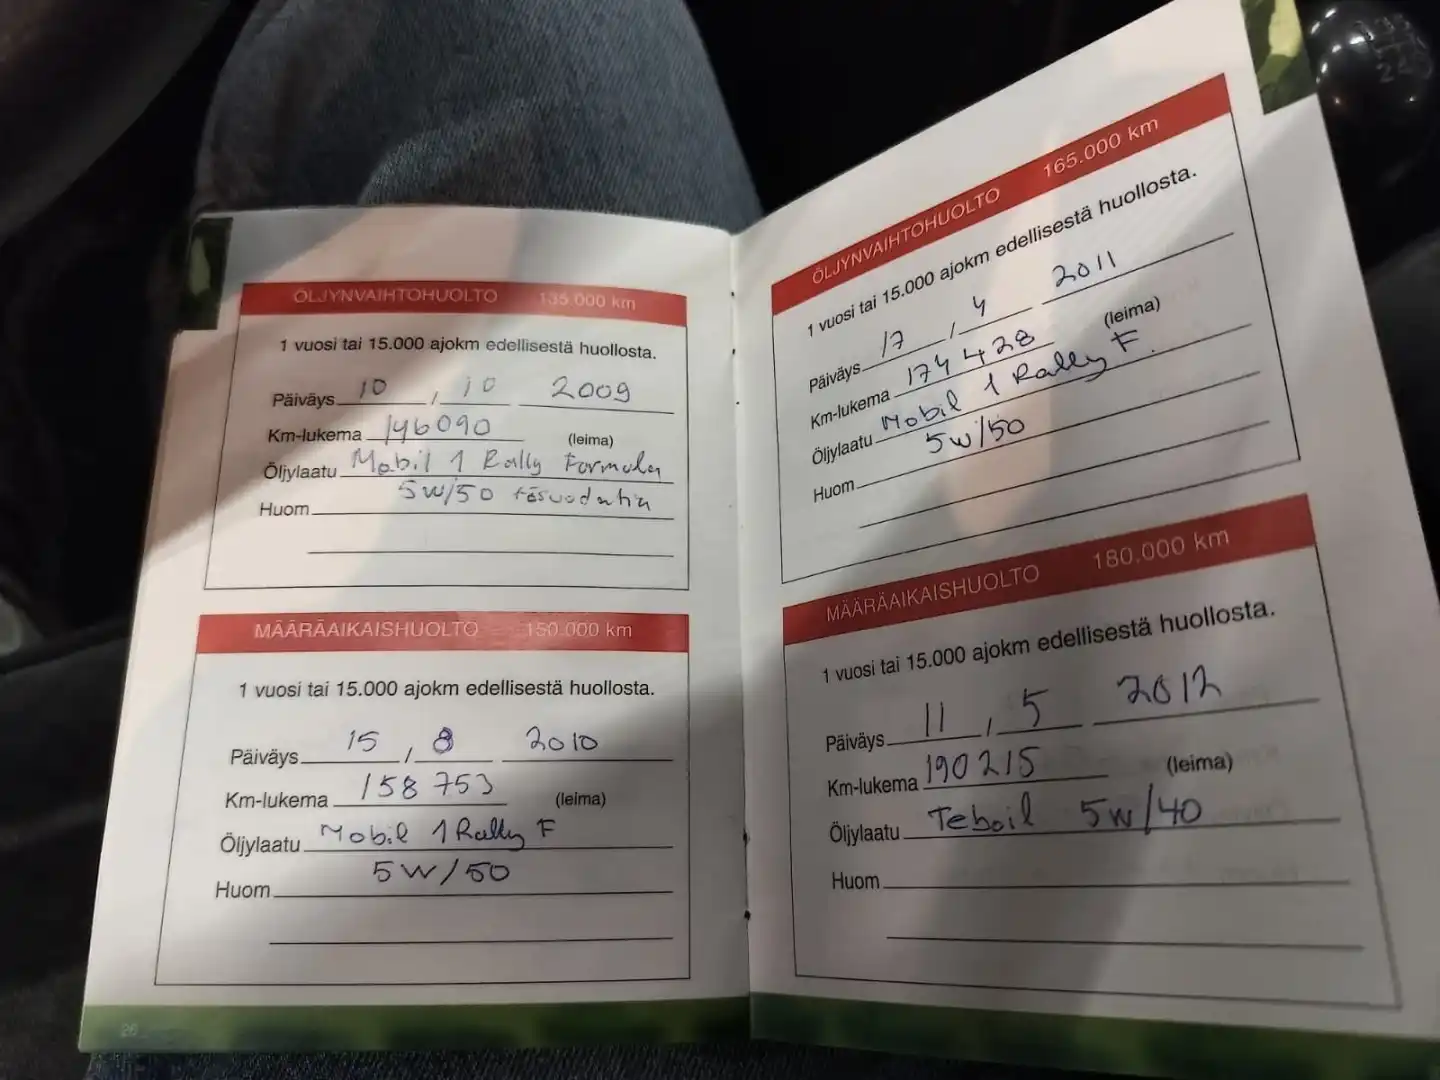 ÖLJYNVAIHTOHUOLTO 135.000 km
1 vuosi tai 15.000 ajokm edellisestä huollosta.
Päiväys 10 , 10 2009
Km-lukema 146090 (leima)
Öljylaatu Mobil 1 Rally Formula
5W/50
Huom
MÄÄRÄAIKAISHUOLTO 150.000 km
1 vuosi tai 15.000 ajokm edellisestä huollosta.
Päiväys 15 , 8 2010
Km-lukema 158 753 (leima)
Öljylaatu Mobil 1 Rally F
5W/50
Huom
26
ÖLJYNVAIHTOHUOLTO 165.000 km
1 vuosi tai 15.000 ajokm edellisestä huollosta.
Päiväys 17 , 4 2011
Km-lukema 174 428 (leima)
Öljylaatu Mobil 1 Rally F.
5W/50
Huom
MÄÄRÄAIKAISHUOLTO 180.000 km
1 vuosi tai 15.000 ajokm edellisestä huollosta.
Päiväys 11 , 5 2012
Km-lukema 190 215 (leima)
Öljylaatu Teboil 5W/40
Huom